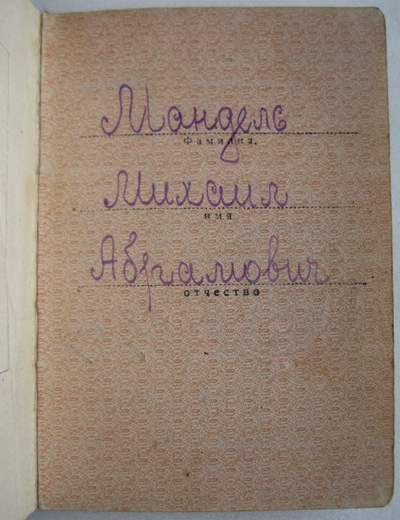 Мандель
Фамилия.
Михаил
имя
Абрамович
отчество